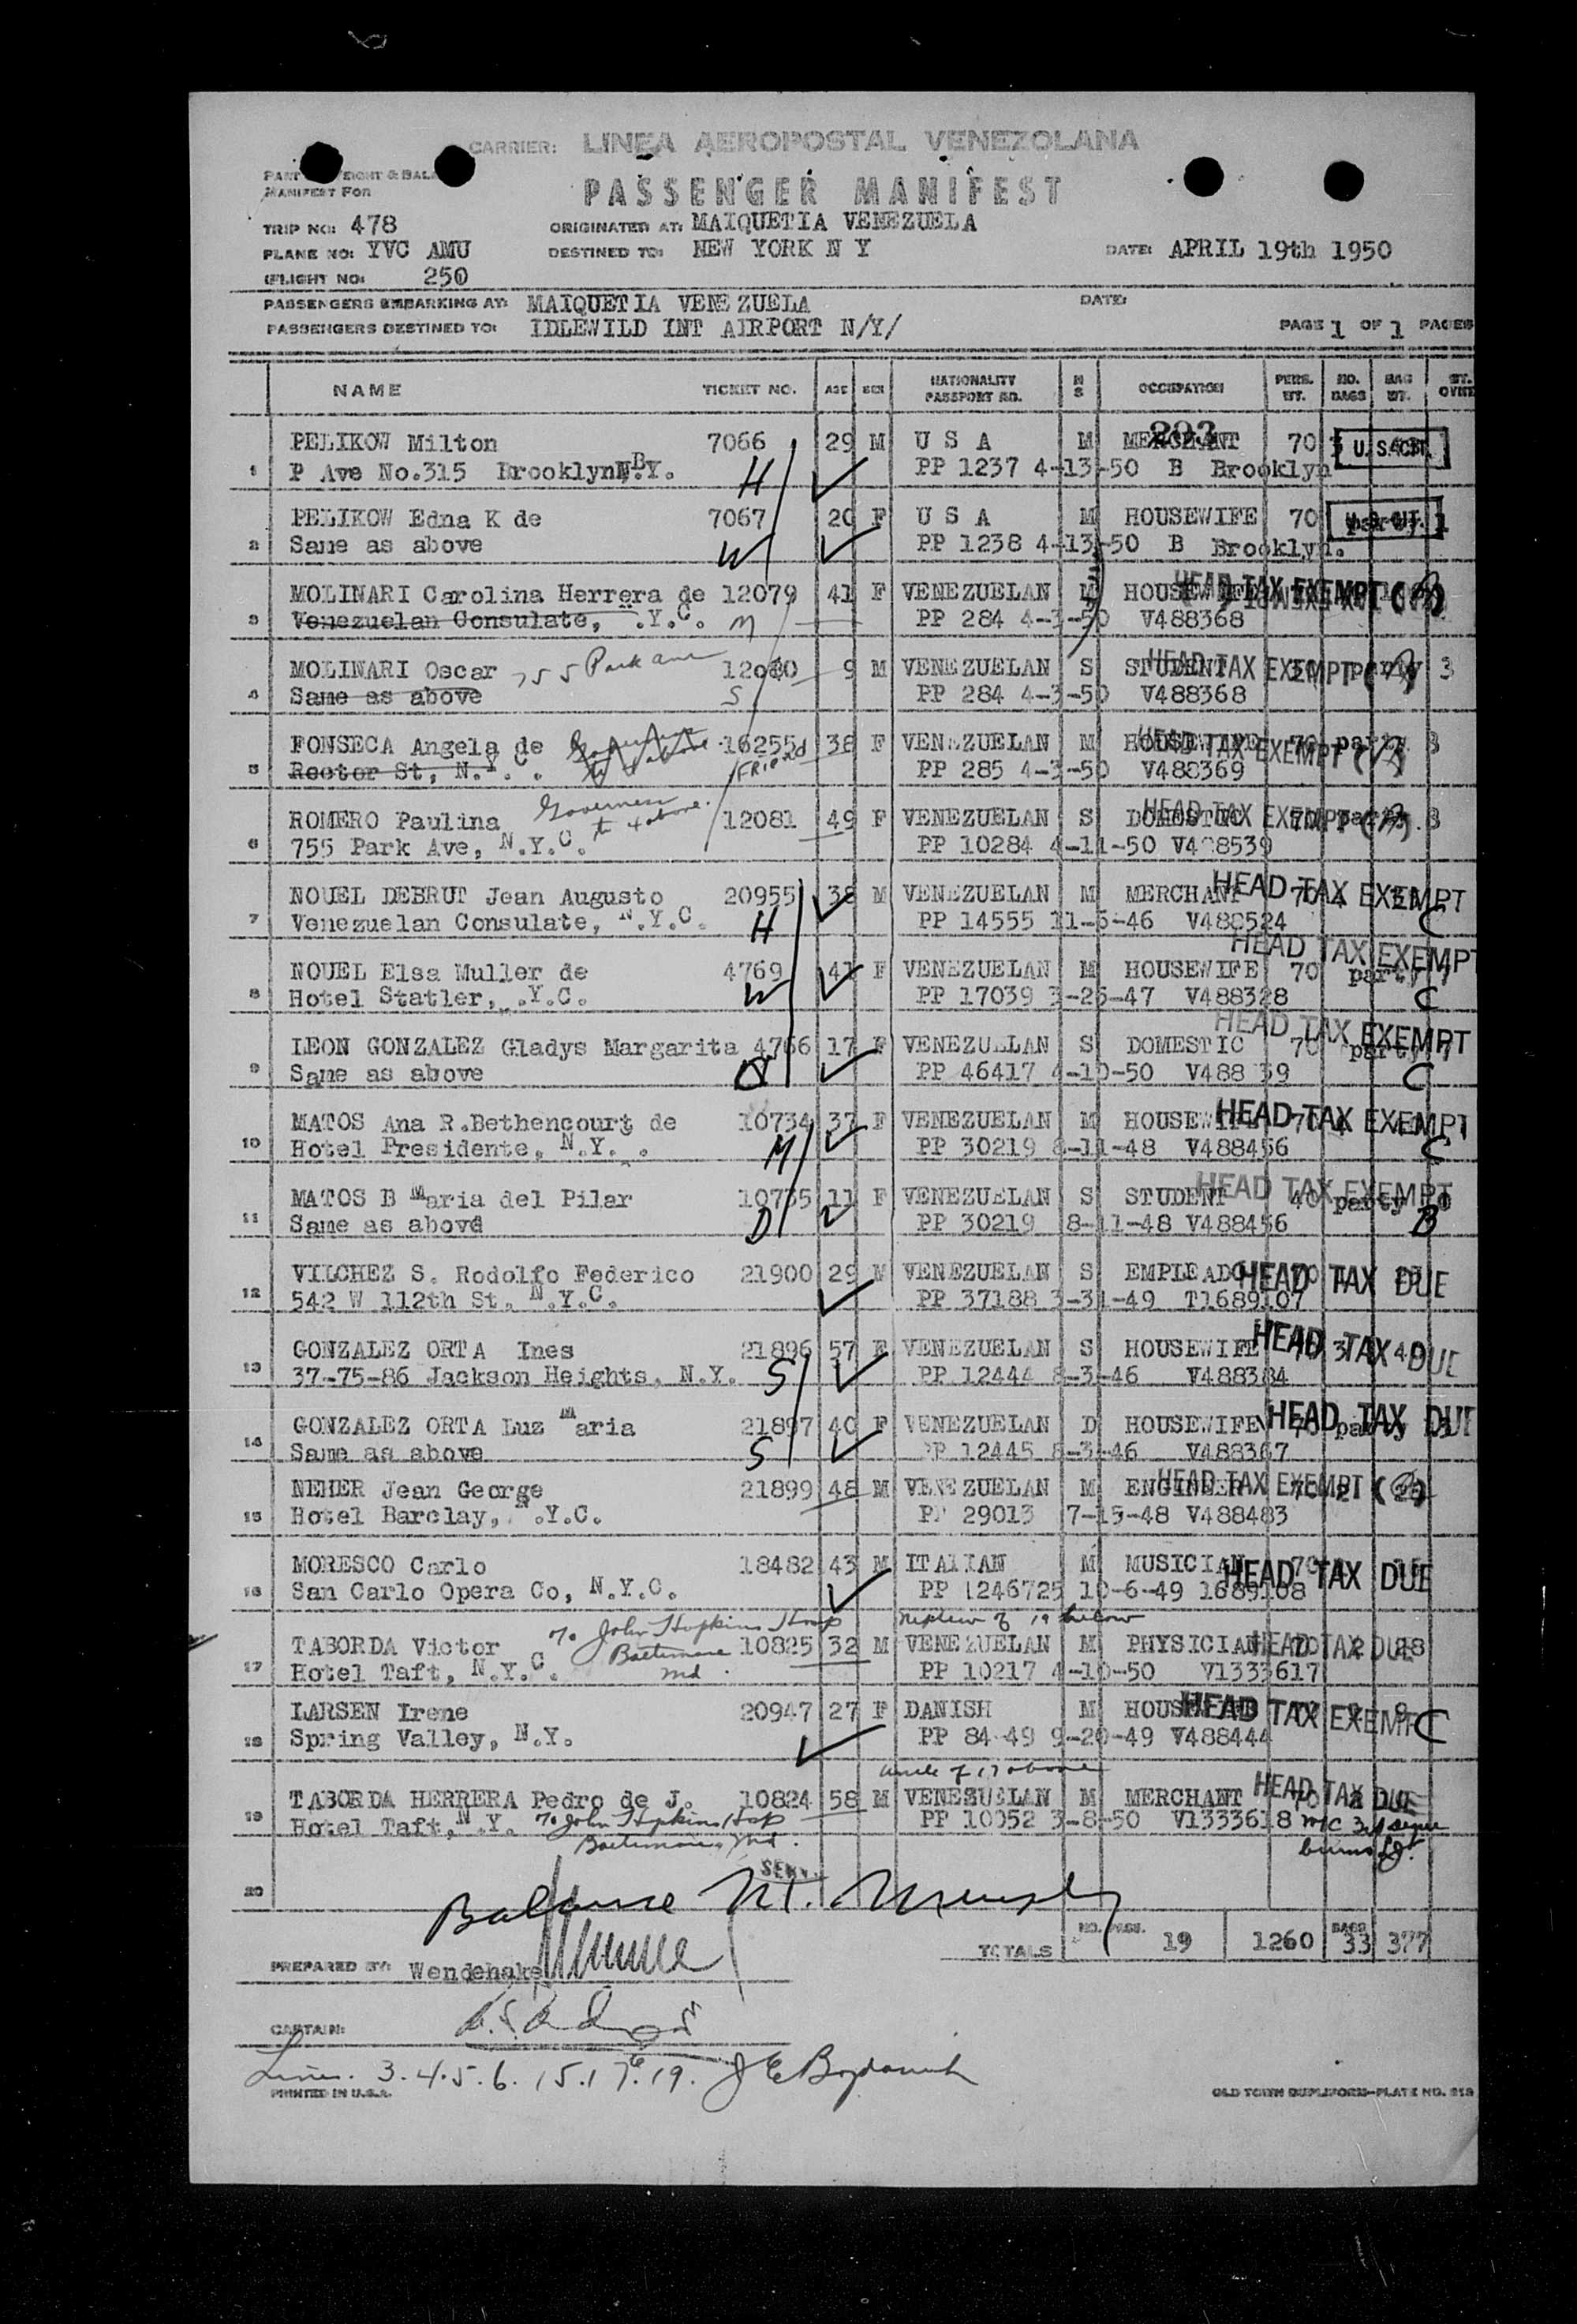 CARRIER: LINEA AEROPOSTAL VENEZOLANA
MANIFEST FOR
PASSENGER MANIFEST
TRIP NO: 478 ORIGINATED AT: MAIQUETIA VENEZUELA
PLANE NO: YVC AMU DESTINED TO: NEW YORK N Y DATE: APRIL 19th 1950
FLIGHT NO: 250
PASSENGERS EMBARKING AT: MAIQUETIA VENEZUELA DATE:
PASSENGERS DESTINED TO: IDLEWILD INT AIRPORT N/Y/ PAGE 1 OF 1 PAGES
NAME TICKET NO. AGE SEX NATIONALITY PASSPORT NO. M S OCCUPATION PERS. WT. NO. BAGS BAG WT.
293
PELIKOW Milton 7066 29 M U S A M MERCHANT 70 U.S.CIT.
1 P Ave No.315 Brooklyn N.Y. H PP 1237 4-13-50 B Brooklyn
PELIKOW Edna K de 7067 20 F U S A M HOUSEWIFE 70 U.S.CIT. party 1
2 Same as above W PP 1238 4-13-50 B Brooklyn.
MOLINARI Carolina Herrera de 12079 41 F VENEZUELAN M HOUSEWIFE HEAD TAX EXEMPT (B)
3 Venezuelan Consulate, N.Y.C. M PP 284 4-3-50 V488368
MOLINARI Oscar 755 Park ave 12080 9 M VENEZUELAN S STUDENT HEAD TAX EXEMPT party 3
4 Same as above S PP 284 4-3-50 V488368
FONSECA Angela de 16255 38 F VENEZUELAN M HOUSEWIFE HEAD TAX EXEMPT 70 party 3
5 Rector St, N.Y.C. FRIEND PP 285 4-3-50 V488369
Governess
ROMERO Paulina to 4 above. 12081 49 F VENEZUELAN S DOMESTIC HEAD TAX EXEMPT 70 party 3
6 755 Park Ave, N.Y.C. PP 10284 4-11-50
NOUEL DEBRUT Jean Augusto 20955 38 M VENEZUELAN M MERCHANT HEAD TAX EXEMPT
7 Venezuelan Consulate, N.Y.C. H PP 14555 V488524 C
NOUEL Elsa Muller de 4769 41 F VENEZUELAN M HOUSEWIFE 70 HEAD TAX EXEMPT party 7
8 Hotel Statler, N.Y.C. W PP 17039 3-26-47 V488328 C
LEON GONZALEZ Gladys Margarita 4766 17 F VENEZUELAN S DOMESTIC 70 HEAD TAX EXEMPT party 7
9 Same as above PP 46417 4-10-50 C
MATOS Ana R.Bethencourt de 10734 37 F VENEZUELAN M HOUSEWIFE HEAD TAX EXEMPT
10 Hotel Presidente, N.Y. M PP 30219 8-11-48 V488456 C
MATOS B Maria del Pilar 10735 11 F VENEZUELAN S STUDENT HEAD TAX EXEMPT 40 party
11 Same as above D PP 30219 8-11-48 V488456 B
VILCHEZ S. Rodolfo Federico 21900 29 M VENEZUELAN S EMPLEADO HEAD TAX DUE
12 542 W 112th St, N.Y.C. PP 37188 3-31-49 T1689107
GONZALEZ ORTA Ines 21896 57 F VENEZUELAN S HOUSEWIFE HEAD TAX DUE
13 37-75-86 Jackson Heights, N.Y. S PP 12444 8-3-46 V488384
GONZALEZ ORTA Luz Maria 21897 40 F VENEZUELAN D HOUSEWIFE HEAD TAX DUE
14 Same as above S PP 12445 8-3-46 V488367
NEHER Jean George 21899 48 M VENEZUELAN M ENGINEER HEAD TAX EXEMPT
15 Hotel Barclay, N.Y.C. PP 29013 7-15-48 V488483
MORESCO Carlo 18482 43 M ITALIAN M MUSICIAN 70 HEAD TAX DUE
16 San Carlo Opera Co, N.Y.C. PP 1246725 10-6-49 1689108
To John Hopkins Hosp nephew of 19 below
TABORDA Victor Baltimore 10825 32 M VENEZUELAN M PHYSICIAN HEAD TAX DUE
17 Hotel Taft, N.Y.C. Md. PP 10217 4-10-50 V1333617
LARSEN Irene 20947 27 F DANISH M HOUSEWIFE HEAD TAX EXEMPT C
18 Spring Valley, N.Y. PP 84-49 9-20-49 V488444
uncle of 17 above
TABORDA HERRERA Pedro de J. 10824 58 M VENEZUELAN M MERCHANT HEAD TAX DUE
19 Hotel Taft, N.Y. To John Hopkins Hosp PP 10052 3-8-50 V1333618
Baltimore, Md.
20 Balance
TOTALS NO. PASS. 19 1260 BAGS 33 377
PREPARED BY: Wendehake
CAPTAIN:
Lines. 3.4.5.6.15.17.19.
PRINTED IN U.S.A. OLD TOWN DUPLIFORM-PLATE NO.